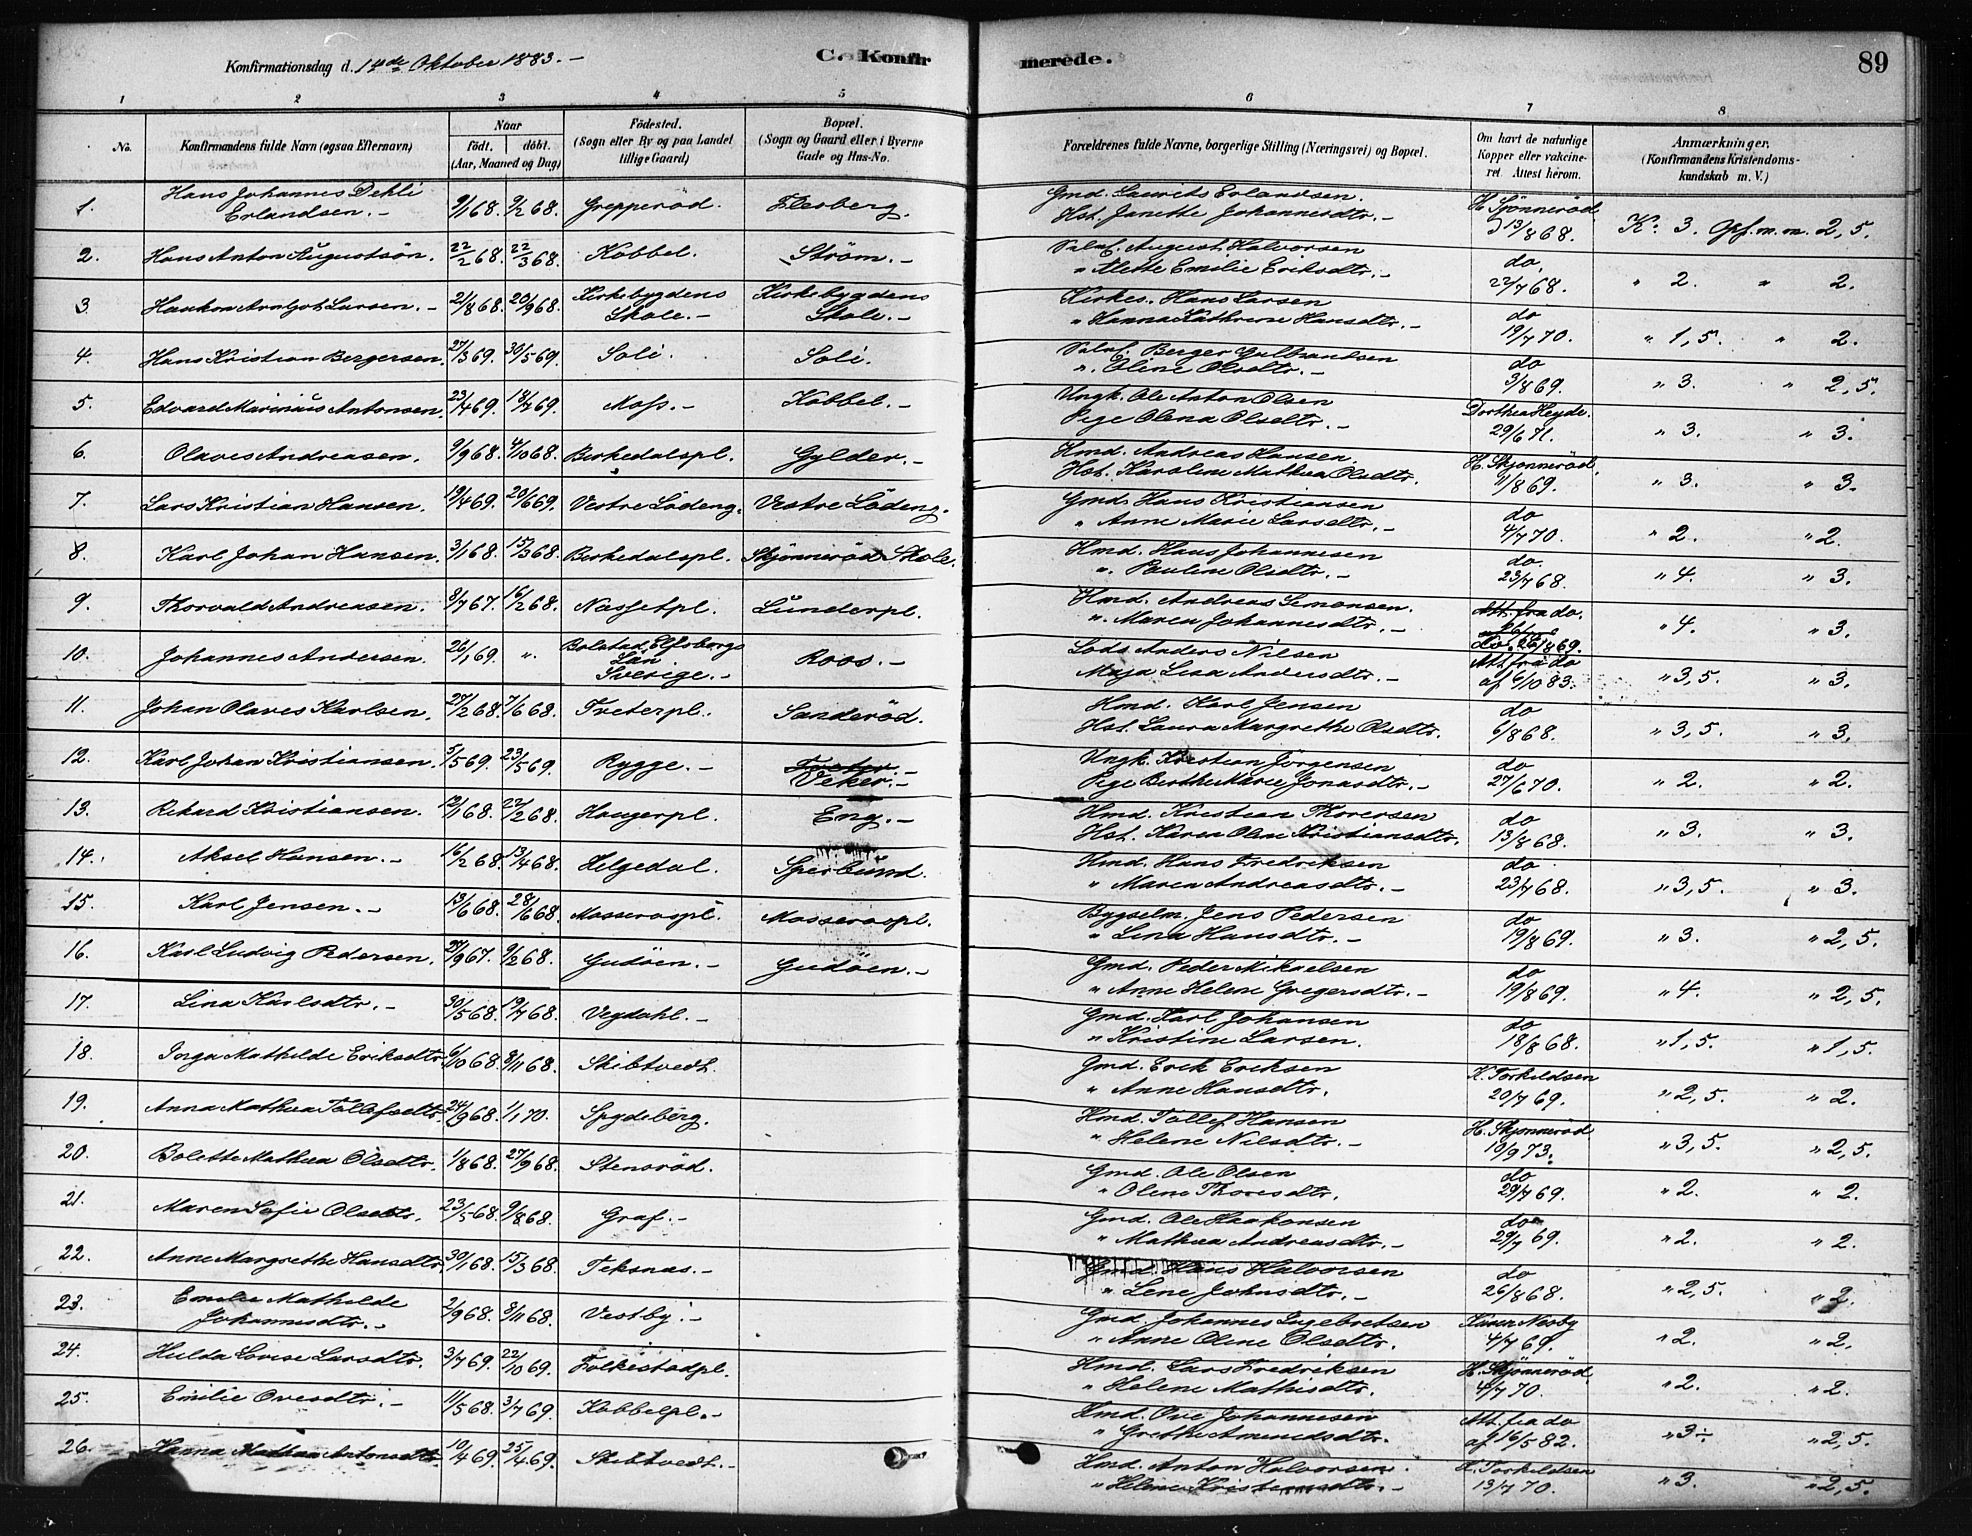 Konfirmationsdag d. 14de Oktober 1883. –
C. Konfirmerede.
89
1 2 3 4 5 6 7 8
No. Konfirmandens fulde Navn (ogsaa Efternavn) Naar født. døbt. (Aar, Maaned og Dag) Fødested. (Sogn eller By og paa Landet tillige Gaard) Bopæl. (Sogn og Gaard eller i Byerne Gade og Hus-No. Forældrenes fulde Navne, borgerlige Stilling (Næringsvei) og Bopæl. Om havt de naturlige Kopper eller vakcineret. Attest herom. Anmærkninger. (Konfirmandens Kristendomskundskab m. V.)
1. Hans Johannes Dehli Erlandsen. – 9/1 68. 9/2 68. Grepperød. Gmd. Laurits Erlandsen. Hst. Janette Johannesdtr. – 13/8 68. K. 3. Opf. m. m. 2,5.
2. Hans Anton Augustsøn. 22/2 68. 22/3 68. Kobbel. Strøm. – August Halvorsen " Alette Emilie Eriksdtr. – do. 22/7 68. " 2. " 2.
3. Larsen. – 21/8 68. 20/9 68. Kirkebygdens Skole. – Kirkebygdens Skole. – Kirkes. Hans Larsen " Hanna Kathrine Hansdtr. – do 19/7 70. " 1,5. " 2.
4. Hans Kristian Bergersen. 27/3 69. 30/5 69. Soli. Soli. Berger Gulbrandsen ". Oline Olsdtr. – do 3/8 69. " 3. " 2,5.
5. Edvard Marinius Antonsen. 23/4 69. 18/7 69. Moss. – Kobbel. – Ungk. Ole Anton Olsen Pige Olena Olsdtr. – Dorthea Heyde. 29/6 71. " 3. " 3.
6. Olaves Andreasen. 9/9 68. 4/10 68. Birkedalspl. Gylder. – Hmd. Andreas Hansen. Hst. Karoline Mathea Olsdtr. H. Skjønnerød. /8 69. " 3. " 3.
7. Lars Kristian Hansen. 19/4 69. 20/6 69. Vestre Lødeng. Vestre Lødeng. Gmd. Hans Kristiansen " Anne Marie Larsdtr. – do 4/7 70. " 2. " 2.
8. Karl Johan Hansen. 3/1 68. 15/3 68. Birkedalspl. Skjønnerød Skole. Hmd. Hans Johannesen ". Pauline Olsdtr. – do. 23/7 68. " 4. " 3.
9. Thorvald Andreasen. 8/7 67. 16/2 68. Nassetpl. Lunderpl. Hmd. Andreas Simonsen. ". Maren Johannesdtr. – Att. fra do. " 4. " 3.
10. Johannes Andersen. 26/1 69. ". Bolstad, Elfsborgs Län Sverige. – Roos. – Lods Anders Nilsen Maja Lisa Andersdtr. – Att. fra do af 6/10 83. " 3,5. " 3.
11. Johan Olaves Karlsen. 27/2 68. 7/6 68. Tveterpl. Sanderød. Hmd. Karl Jensen Hst. Laura Margrethe Olsdtr. do 6/8 68. " 3,5. " 3.
12. Karl Johan Kristiansen. 5/5 69. 23/5 69. Rygge. – Veker. – Ungk. Kristian Jørgensen Pige Berthe Marie Jonasdtr. – do 27/6 70. " 2. " 2.
13. Rikard Kristiansen. 12/1 68. 22/2 68. Haugerpl. Eng. – Hmd. Kristian Thoresen Hst. Karen Oline Kristiansdtr. do 13/8 68. " 3. " 3.
14. Aksel Hansen. – 16/2 68. 13/4 68. Helgedal. Sperbund. Hmd. Hans Fredriksen " Maren Andreasdtr. – do 23/7 68. " 3,5. " 3.
15. Karl Jensen. – 13/6 68. 28/6 68. Mosserospl. Mosserospl. Bygselm. Jens Pedersen " Lina Hansdtr. – do 19/8 69. " 3. " 2,5.
16. Karl Ludvig Pedersen. 27/9 67. 9/2 68. Gudøen. – Gudøen. – Gmd. Peder Mikaelsen " Anne Helene Gregersdtr. – do 19/8 69. " 4. " 2,5.
17. Lina Karlsdtr. – 30/5 68. 19/7 68. Vegdahl. – Gmd. Karl Johansen " Kristine Larsen. do 18/8 68. " 1,5. " 1,5.
18. Inga Mathilde Eriksdtr. 6/10 68. 8/11 68. Skibtvedt. Gmd. Erik Eriksen " Anne Hansdtr. K. Torkildsen 20/7 69. " 2,5. " 2.
19. Anna Mathea Tollefsdtr. 24/9 68. 1/1 70. Spydeberg. Hmd. Tollef Hansen " Helene Nilsdtr. – H. Skjønnerød 10/9 73. " 3,5. " 2,5.
20. Bolette Mathea Olsdtr. 1/8 68. 27/9 68. Stensrød. Gmd. Ole Olsen " Oline Thoresdtr. do 29/7 69. " 2. " 2.
21. Maren Sofie Olsdtr. 23/5 68. 9/8 68. Graf. – Gmd. Ole Haakonsen " Mathea Andreasdtr. – do 29/7 69. " 2. " 2.
22. Anne Margrethe Hansdtr. 30/1 68. 15/3 68. Teksnas. – Gmd. Hans Halvorsen " Lene Johnsdtr. – do 26/8 68. " 2,5. " 2.
23. Emilie Mathilde Johannesdtr. – 2/9 68. 8/11 68. Vestby. – Gmd. Johannes Ingebretsen " Anne Oline Olsdtr. 4/7 69. " 2. " 2.
24. Hulda Lovise Larsdtr. 3/7 69. 22/10 69. Folkestadpl. Hmd. Lars Fredriksen " Helene Mathisdtr. H. Skjønnerød. 4/7 70. " 2. " 2.
25. Emilie Ovesdtr. – 11/5 68. 3/7 69. Kobbelpl. – Hmd. Ove Johannesen " Grethe Amundsdtr. Att. fra do af 16/5 82. " 3÷ " 2,5.
26. Hanna Mathea Antonsdtr. 10/4 69. 25/4 69. Skibtvedt. – Hmd. Anton Halvorsen. " Helene Kristensdtr. – K. Torkildsen 13/7 70. " 3. " 2,5.